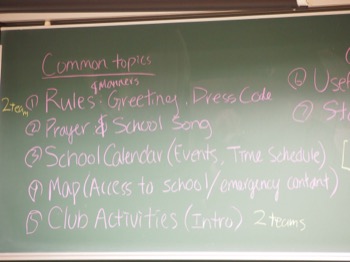 Common topics
& Manners
2 team ① Rules: Greeting, Dress Code
② Prayer & School Song
③ School Calendar (Events, Time Schedule)
④ Map (Access to school/emergency contant)
⑤ Club Activities (Intro) 2 teams
⑥
⑦